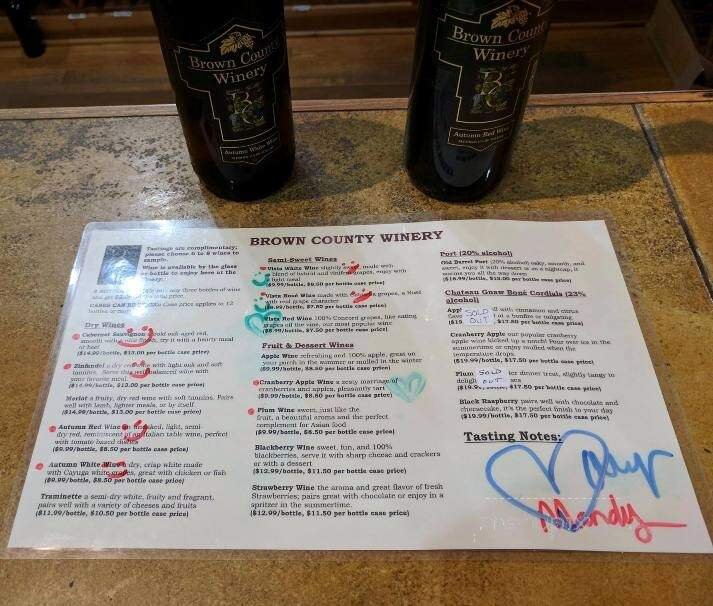 Brown County
Winery
BC
Autumn White Wine
Brown County
Winery
BC
Autumn Red Wine
BROWN COUNTY WINERY
Tastings are complimentary;
please choose 6 to 8 wines to
sample.
Wine is available by the glass
or bottle to enjoy here at the
any three bottles of wine
Case price applies to 12
Dry Wines
Cabernet Sauvignon oak aged red,
smooth with a try it with a hearty meal
or beef
($14.99/bottle, $13.00 per bottle case price)
Zinfandel a dry with light oak and soft
tannins. Serve this wine with
your favorite meal.
($14.99/bottle, $13.00 per bottle case price)
Merlot a fruity, dry red wine with soft tannins. Pairs
well with lamb, lighter meats, or by itself.
($14.99/bottle, $13.00 per bottle case price)
Autumn Red Wine light, semi-
dry red, reminiscent of an Italian table wine, perfect
with tomato based dishes
($9.99/bottle, $8.50 per bottle case price)
Autumn White Wine dry, crisp white made
with Cayuga white grapes, great with chicken or fish
($9.99/bottle, $8.50 per bottle case price)
Traminette a semi-dry white, fruity and fragrant,
pairs well with a variety of cheeses and fruits
($11.99/bottle, $10.50 per bottle case price)
Semi-Sweet Wines
Vista White Wine slightly made with
blend of hybrid and grapes, enjoy with
light meal
($9.99/bottle, $8.50 per bottle case price)
Vista Rosé Wine made with grapes, a
with real grape character
per bottle case price)
Vista Red Wine 100% Concord grapes, like eating
grapes off the vine, our most popular wine
($8.99/bottle, $7.50 per bottle case price)
Fruit & Dessert Wines
Apple Wine refreshing and 100% apple, great on
your porch in the summer or mulled in the winter
($9.99/bottle, $8.50 per bottle case price)
Cranberry Apple Wine a zesty marriage of
cranberries and apples, pleasantly tart
($9.99/bottle, $8.50 per bottle case price)
Plum Wine sweet, just like the
fruit, a beautiful aroma and the perfect
complement for Asian food
($9.99/bottle, $8.50 per bottle case price)
Blackberry Wine sweet, fun, and 100%
blackberries, serve it with sharp cheese and crackers
or with a dessert
($12.99/bottle, $11.50 per bottle case price)
Strawberry Wine the aroma and great flavor of fresh
Strawberries; pairs great with chocolate or enjoy in a
spritzer in the summertime.
($12.99/bottle, $11.50 per bottle case price)
Port (20% alcohol)
Old Barrel Port (20% alcohol) oaky, smooth, and
sweet, enjoy it with dessert or as a nightcap, it
warms you all the way down
Chateau Gnaw Boné Cordials (23%
alcohol)
Appl SOLD with cinnamon and citrus
at a bonfire or tailgating
($19 OUT $17.50 per bottle case price)
Cranberry Apple our popular cranberry
apple wine kicked up a notch! Pour over ice in the
summertime or enjoy mulled when the
temperature drops.
($19.99/bottle, $17.50 per bottle case price)
Plum SOLD dinner treat, slightly tangy to
deligh OUT
($19.99 $17.50 per bottle case price)
Black Raspberry pairs well with chocolate and
cheesecake, it's the perfect finish to your day
($19.99/bottle, $17.50 per bottle case price)
Tasting Notes:
Mandy